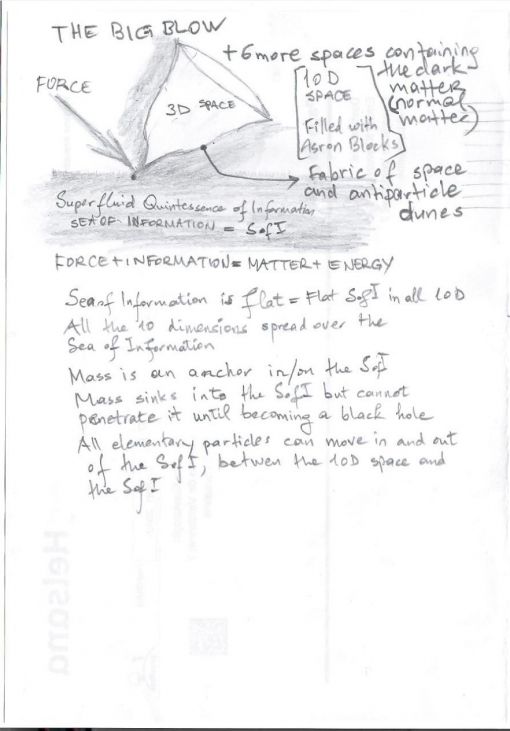 THE BIG BLOW
+6 more spaces containing
the dark
matter
(normal
matter)
10D
SPACE
Filled with
Asron Blocks
FORCE
3D SPACE
Fabric of space
and antiparticle
dunes
Superfluid Quintessence of Information
SEA OF INFORMATION = SofI
FORCE + INFORMATION = MATTER + ENERGY
Sea of Information is flat = Flat SofI in all 10D
All the 10 dimensions spread over the
Sea of Information
Mass is an anchor in/on the SofI
Mass sinks into the SofI but cannot
penetrate it until becoming a black hole
All elementary particles can move in and out
of the SofI, betwen the 10D space and
the SofI
Helsana